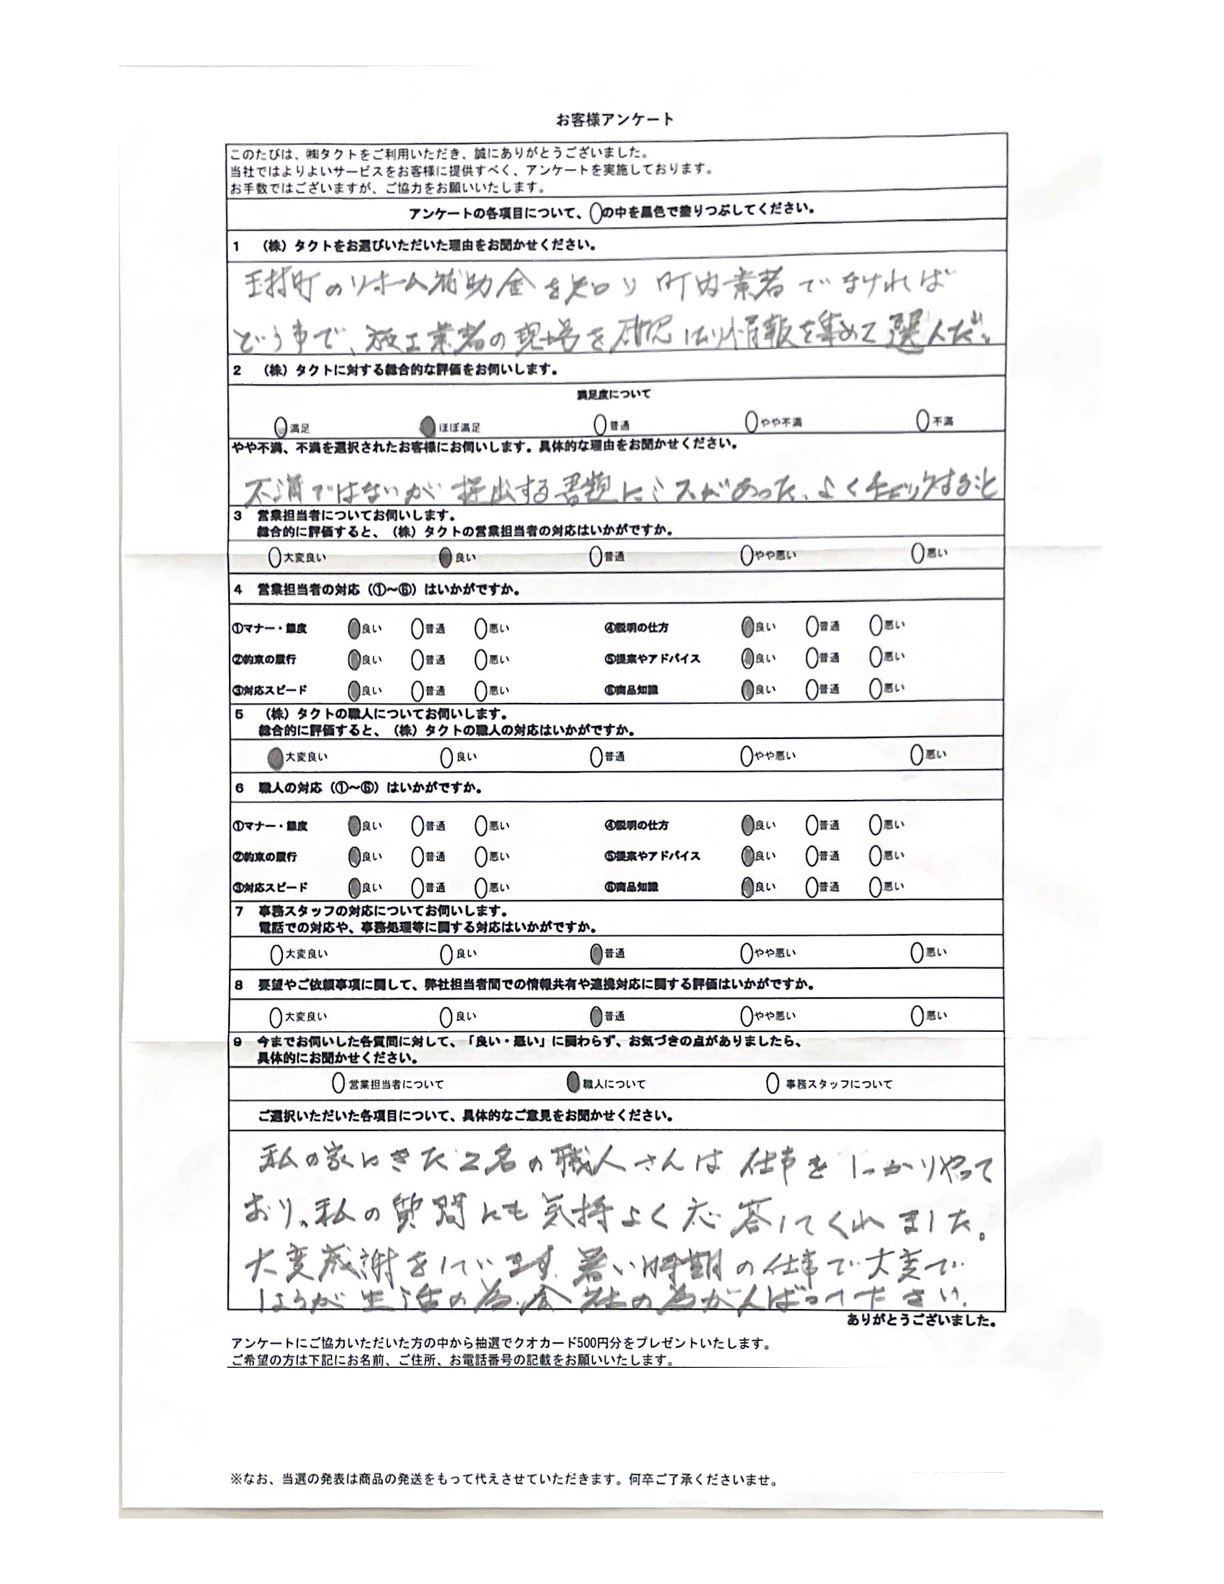 お客様アンケート
このたびは、㈱タクトをご利用いただき、誠にありがとうございました。
当社ではよりよいサービスをお客様に提供すべく、アンケートを実施しております。
お手数ではございますが、ご協力をお願いいたします。
アンケートの各項目について、○の中を黒色で塗りつぶしてください。
1 （株）タクトをお選びいただいた理由をお聞かせください。
玉村町のリホーム補助金を知り 町内業者でなければ
という事で、施工業者の現場を確認したり情報を集めて選んだ。
2 （株）タクトに対する総合的な評価をお伺いします。
満足度について
満足 ほぼ満足 普通 やや不満 不満
やや不満、不満を選択されたお客様にお伺いします。具体的な理由をお聞かせください。
不満ではないが 提出する書類にミスがあった、よくチェックすること
3 営業担当者についてお伺いします。
総合的に評価すると、（株）タクトの営業担当者の対応はいかがですか。
大変良い 良い 普通 やや悪い 悪い
4 営業担当者の対応（①～⑥）はいかがですか。
①マナー・態度 良い 普通 悪い ④説明の仕方 良い 普通 悪い
②約束の履行 良い 普通 悪い ⑤提案やアドバイス 良い 普通 悪い
③対応スピード 良い 普通 悪い ⑥商品知識 良い 普通 悪い
5 （株）タクトの職人についてお伺いします。
総合的に評価すると、（株）タクトの職人の対応はいかがですか。
大変良い 良い 普通 やや悪い 悪い
6 職人の対応（①～⑥）はいかがですか。
①マナー・態度 良い 普通 悪い ④説明の仕方 良い 普通 悪い
②約束の履行 良い 普通 悪い ⑤提案やアドバイス 良い 普通 悪い
③対応スピード 良い 普通 悪い ⑥商品知識 良い 普通 悪い
7 事務スタッフの対応についてお伺いします。
電話での対応や、事務処理等に関する対応はいかがですか。
大変良い 良い 普通 やや悪い 悪い
8 要望やご依頼事項に関して、弊社担当者間での情報共有や連携対応に関する評価はいかがですか。
大変良い 良い 普通 やや悪い 悪い
9 今までお伺いした各質問に対して、「良い・悪い」に関わらず、お気づきの点がありましたら、
具体的にお聞かせください。
営業担当者について 職人について 事務スタッフについて
ご選択いただいた各項目について、具体的なご意見をお聞かせください。
私の家にきた2名の職人さんは 仕事をしっかりやって
おり、私の質問にも気持よく応答してくれました。
大変感謝をしています。暑い時期の仕事で大変で
しょうが 生活の為、会社の為がんばって下さい。
ありがとうございました。
アンケートにご協力いただいた方の中から抽選でクオカード500円分をプレゼントいたします。
ご希望の方は下記にお名前、ご住所、お電話番号の記載をお願いいたします。
※なお、当選の発表は商品の発送をもって代えさせていただきます。何卒ご了承くださいませ。